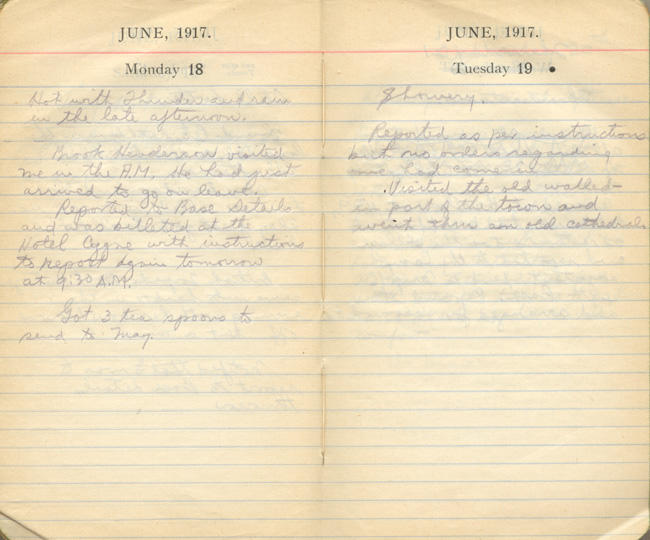 JUNE, 1917.
Monday 18
Hot with Thunder and rain
in the late afternoon.
Brook Henderson visited
me in the A.M. He had just
arrived to go on leave.
Reported to Base Details
and was billeted at the
Hotel with instructions
to report again tomorrow
at 9:30 A.M.
Got 3 tea spoons to
send to May.
JUNE, 1917.
Tuesday 19
Showery.
Reported as per instructions
but no orders regarding
me had come in.
Visited the old walled-
in part of the town and
went thru an old cathedral.